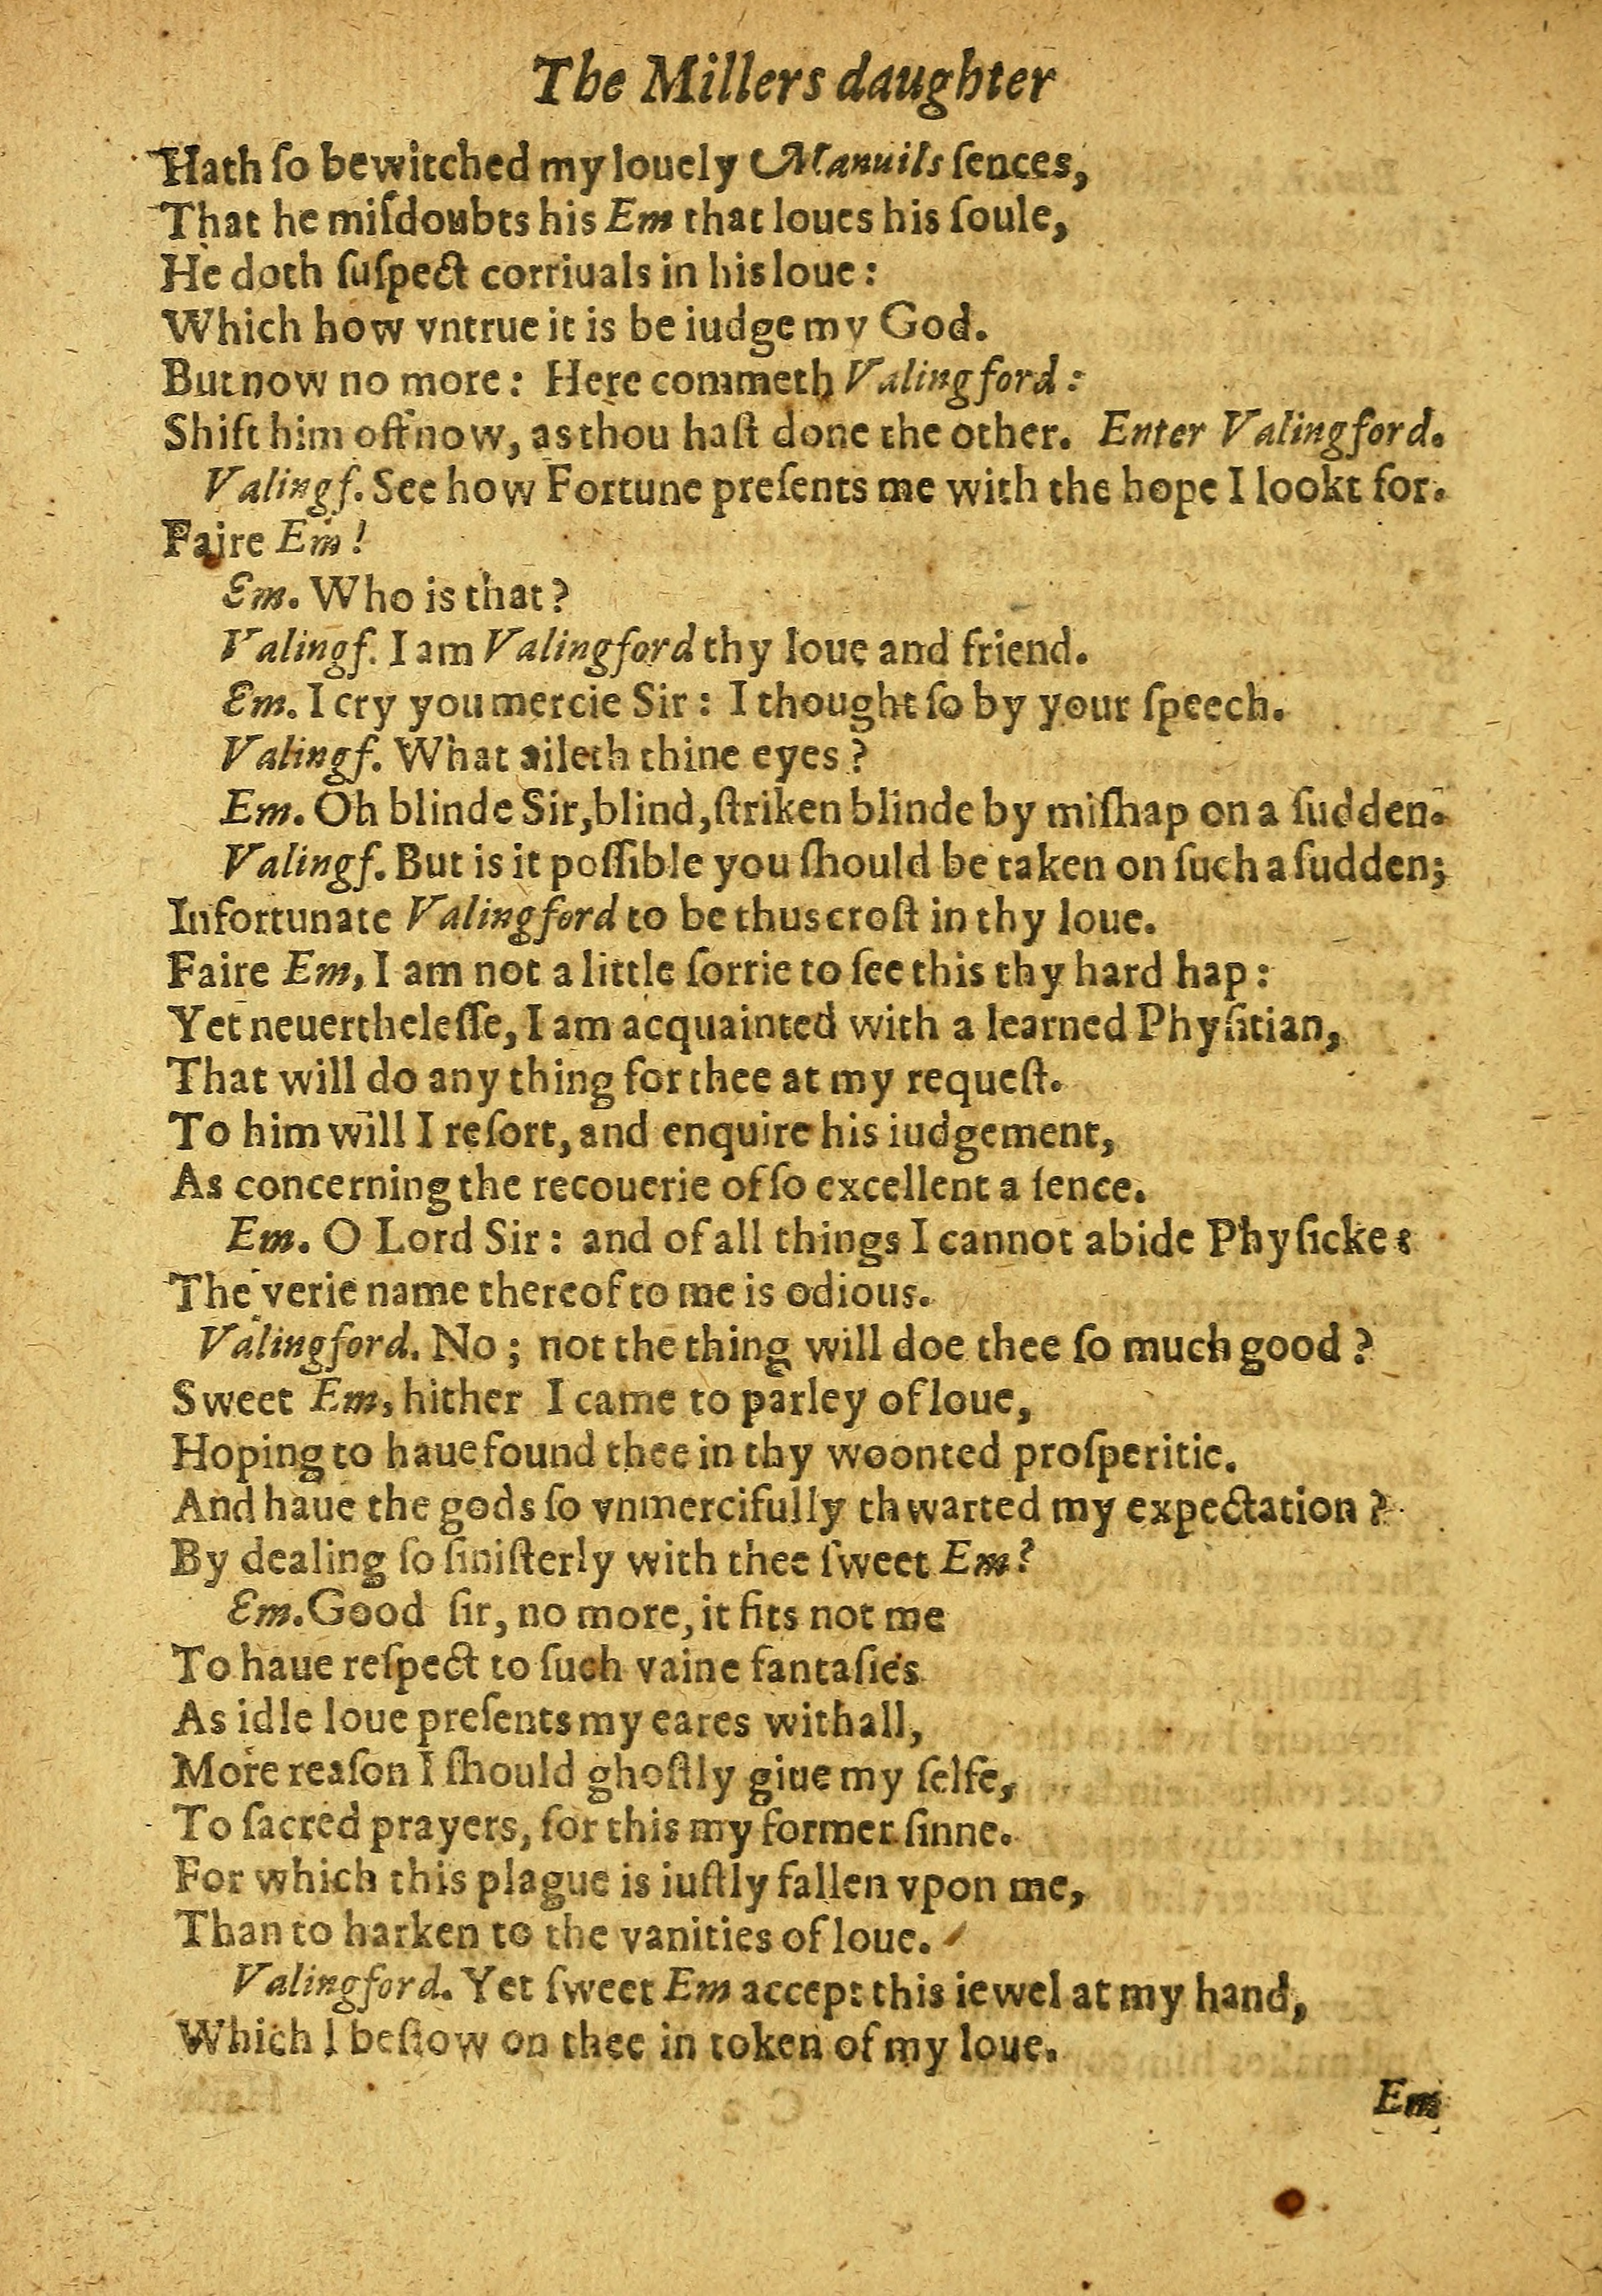 The Millers daughter
Hath ſo bewitched my louely Manuils ſences,
That he miſdoubts his Em that loues his ſoule,
He doth ſuſpect corriuals in his loue:
Which how vntrue it is be iudge my God.
But now no more: Here commeth Valingford:
Shift him off now, as thou haſt done the other. Enter Valingford.
Valingf. See how Fortune preſents me with the hope I lookt for.
Faire Em!
Em. Who is that?
Valingf. I am Valingford thy loue and friend.
Em. I cry you mercie Sir: I thought ſo by your ſpeech.
Valingf. What aileth thine eyes?
Em. Oh blinde Sir, blind, ſtriken blinde by miſhap on a ſudden.
Valingf. But is it poſſible you ſhould be taken on ſuch a ſudden;
Infortunate Valingford to be thus croſt in thy loue.
Faire Em, I am not a little ſorrie to ſee this thy hard hap:
Yet neuertheleſſe, I am acquainted with a learned Phyſitian,
That will do any thing for thee at my requeſt.
To him will I reſort, and enquire his iudgement,
As concerning the recouerie of ſo excellent a ſence.
Em. O Lord Sir: and of all things I cannot abide Phyſicke:
The verie name thereof to me is odious.
Valingford. No; not the thing will doe thee ſo much good?
Sweet Em, hither I came to parley of loue,
Hoping to haue found thee in thy woonted proſperitie.
And haue the gods ſo vnmercifully thwarted my expectation?
By dealing ſo ſiniſterly with thee ſweet Em?
Em. Good ſir, no more, it fits not me
To haue reſpect to ſuch vaine fantaſies
As idle loue preſents my eares withall,
More reaſon I ſhould ghoſtly giue my ſelfe,
To ſacred prayers, for this my former ſinne.
For which this plague is iuſtly fallen vpon me,
Than to harken to the vanities of loue.
Valingford. Yet ſweet Em accept this iewel at my hand,
Which I beſtow on thee in token of my loue.
Em